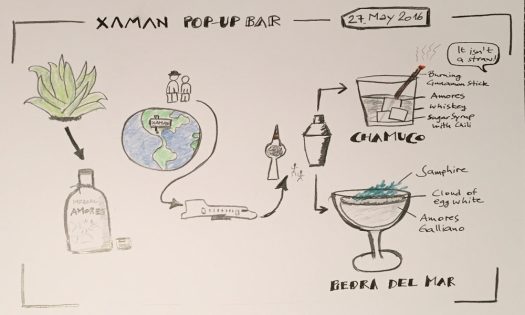 XAMAN POP-UP BAR
27. May 2016
It isn't
a straw!
Burning
Cinnamon Stick
Amores
Whiskey
Sugar Syrup
with Chili
CHAMUCO
XAMAN
MEZCAL
AMORES
Samphire
Cloud of
egg white
Amores
Galliano
PIEDRA DEL MAR